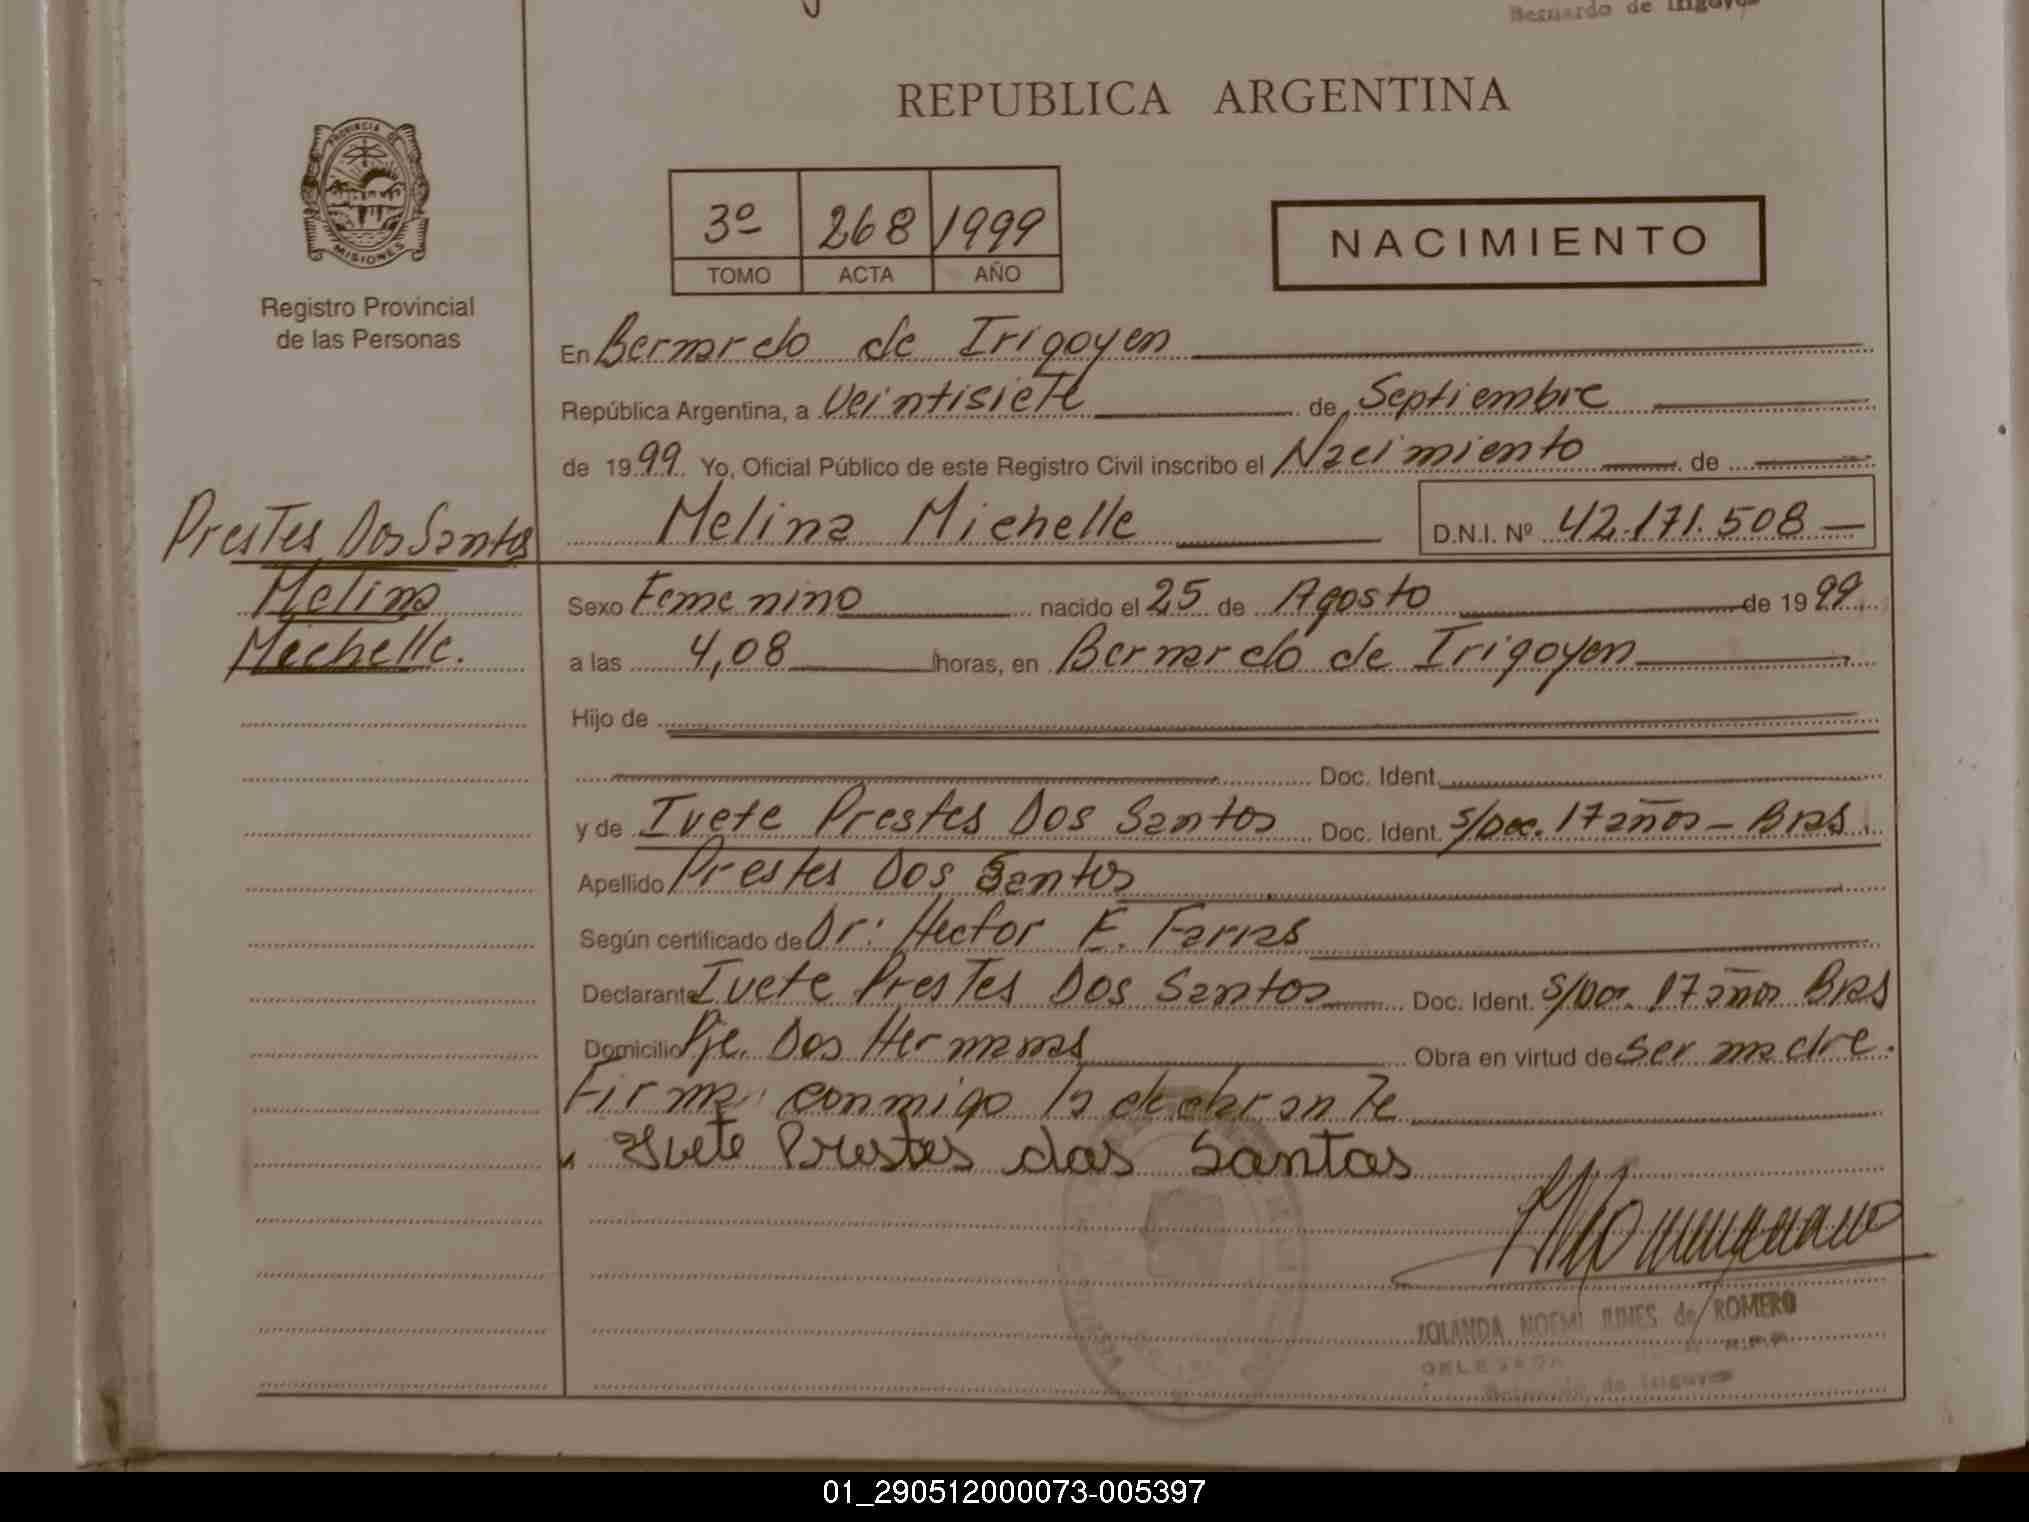 Bernardo de Irigoyen
REPUBLICA ARGENTINA
PROVINCIA DE
MISIONES
Registro Provincial
de las Personas
3º 268 1999
TOMO ACTA AÑO
NACIMIENTO
En Bernardo de Irigoyen
República Argentina, a Veintisiete de Septiembre
de 1999 Yo, Oficial Público de este Registro Civil inscribo el Nacimiento de
Melina Michelle D.N.I. Nº 42.171.508
Prestes Dos Santos
Melina
Michelle.
Sexo Femenino nacido el 25 de Agosto de 1999
a las 4,08 horas, en Bernardo de Irigoyen
Hijo de
Doc. Ident.
y de Ivete Prestes Dos Santos Doc. Ident. s/Doc. 17 años - Bras.
Apellido Prestes Dos Santos
Según certificado de Dr: Hector E. Farias
Declarante Ivete Prestes Dos Santos Doc. Ident. s/Doc. 17 años Bras
Domicilio Pje. Dos Hermanas Obra en virtud de ser madre.
Firma conmigo la declarante
Ivete Prestes dos Santos
YOLANDA NOEMI de ROMERO
DELEGADA
Bernardo de Irigoyen
01_290512000073-005397